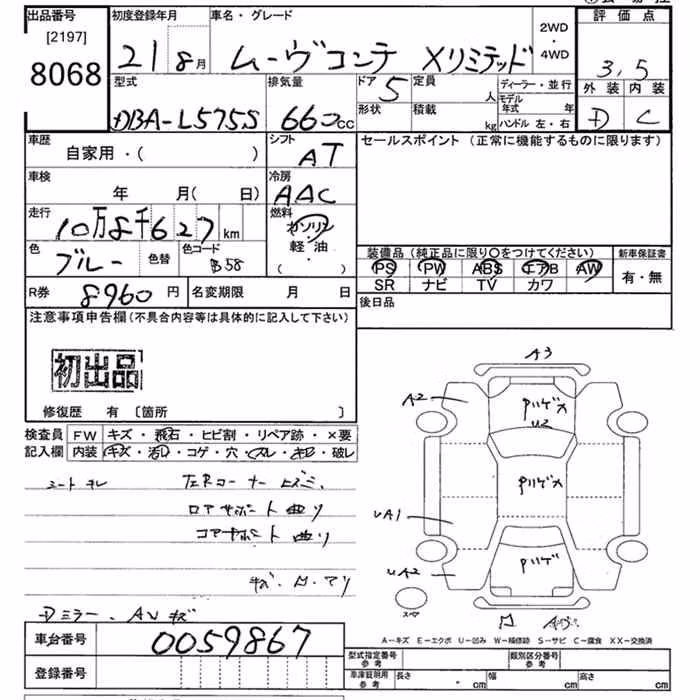 出品番号 初度登録年月 車名・グレード 2WD ・ 4WD 評価点
[2197]
8068
21 8月 ムーヴコンテ Xリミテッド 3.5
型式 排気量 ドア 定員 ディーラー・並行 外装 内装
DBA-L575S 660cc 5 人 モデル年式 年 D C
形状 積載 kg ハンドル 左・右
車歴 シフト セールスポイント (正常に機能するものに限ります)
自家用・( ) AT
車検 冷房
年 月( 日) AAC
走行 燃料
10万8千627km ガソリン
軽油
( ・ )
色 色替 色コード
ブルー B58
装備品 (純正品に限り○をつけてください) 新車保証書
PS PW ABS エアB AW 有・無
SR ナビ TV カワ
R券 8960円 名変期限 月 日 後日品
注意事項申告欄(不具合内容等は具体的に記入して下さい)
初出品
修復歴 有 〔箇所 〕
検査員 FW キズ・飛石・ヒビ割・リペア跡・×要
記入欄 内装 キズ・汚レ・コゲ・穴・スレ・キレ・破レ
シートキレ
ロアサポート曲り
コアサポート曲り
Dミラー、AVキズ
A3
A2
U2
UA1
UA2
スペア
A-キズ E-エクボ U-凹み W-補修跡 S-サビ C-腐食 XX-交換済
車台番号 0059867
登録番号
型式指定番号 参考 類別区分番号 参考
車庫証明用 参考 長さ cm 幅 cm 高さ cm